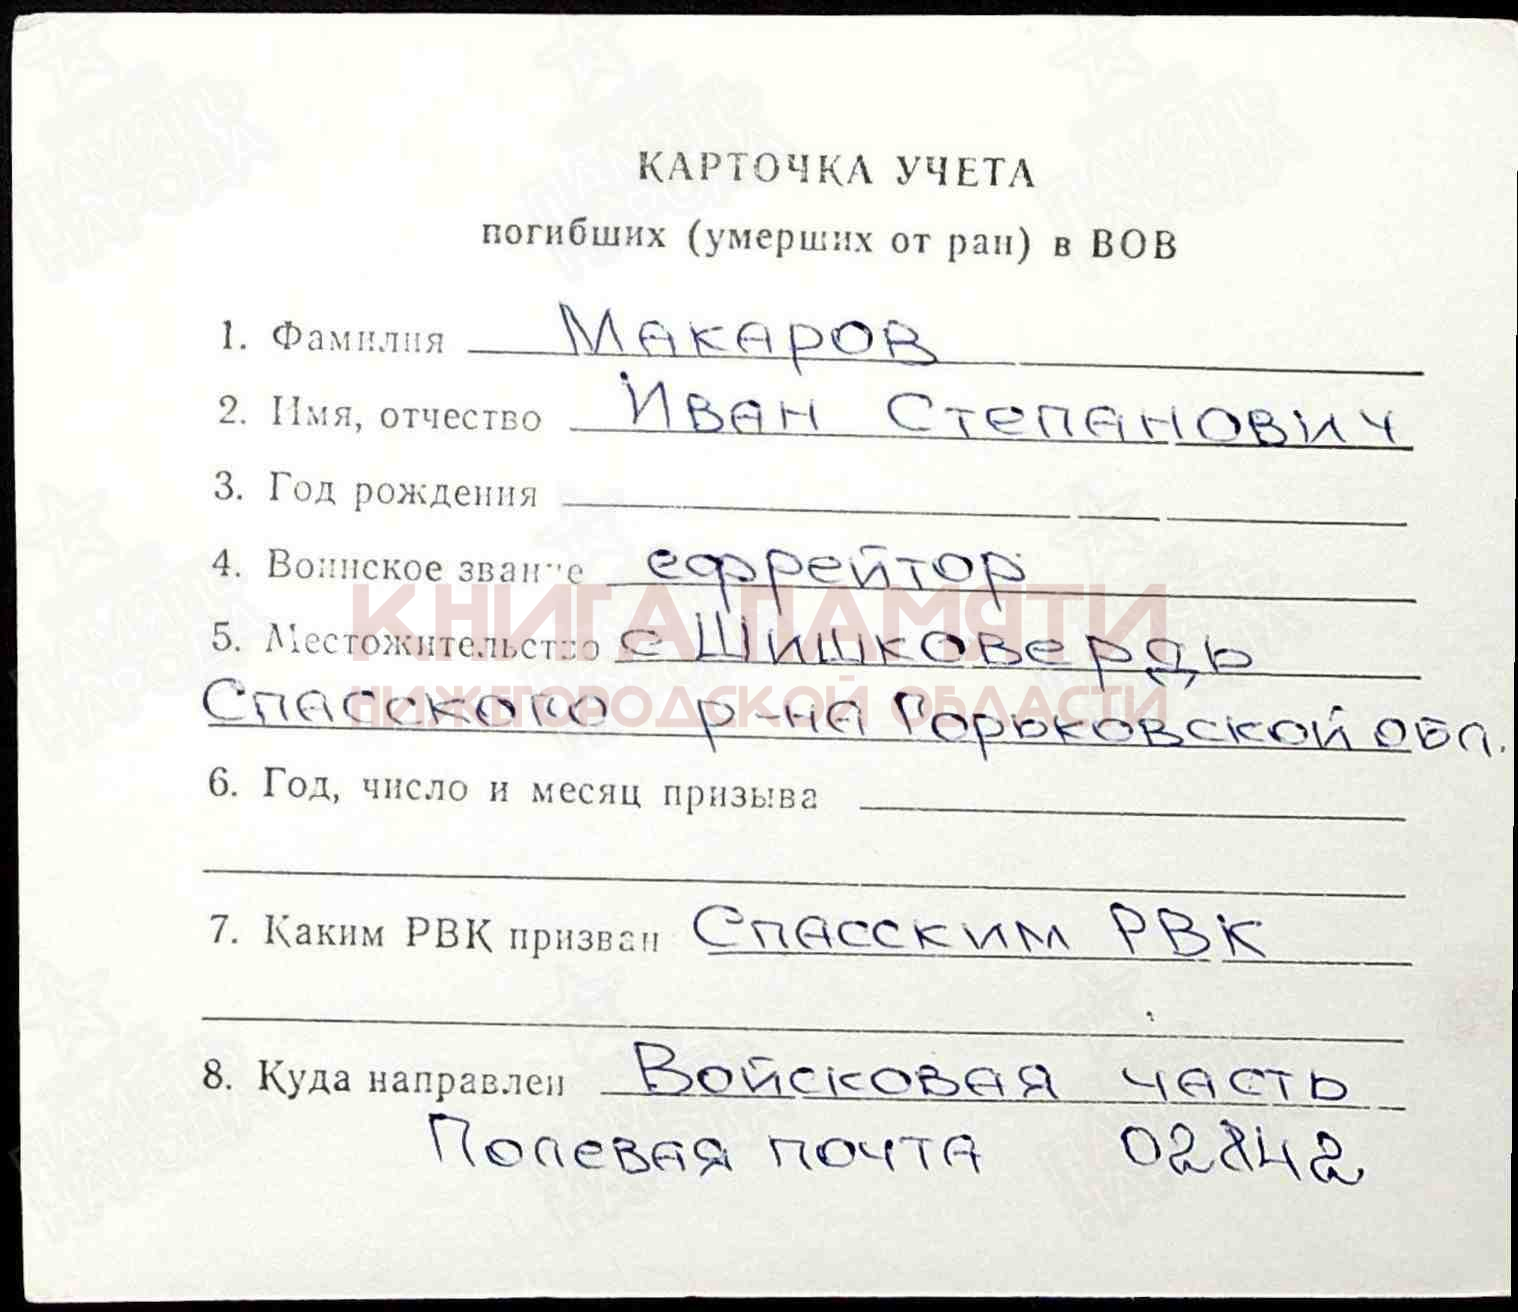 КАРТОЧКА УЧЕТА
погибших (умерших от ран) в ВОВ
1. Фамилия Макаров
2. Имя, отчество Иван Степанович
3. Год рождения
4. Воинское звание ефрейтор
5. Местожительство с Шишковердь
Спасского р-на Горьковской обл.
КНИГА ПАМЯТИ
НИЖЕГОРОДСКОЙ ОБЛАСТИ
6. Год, число и месяц призыва
7. Каким РВК призван Спасским РВК
8. Куда направлен Войсковая часть
Полевая почта